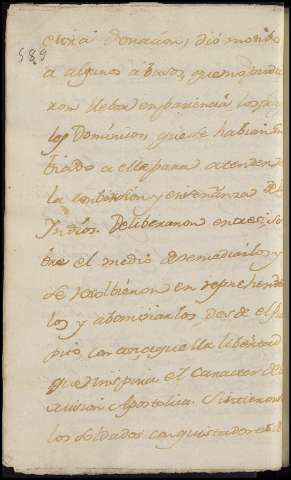 589
Donacion, dió motibo
a algunos abusos, que no pudie
ron llebar en paciencia los
los Dominicos que se habian em
biado a ella para atender
la combersion y enseñanza de
Indios. Deliberaron entre si so
bre el medio de remediarlos y
se resolbieron en reprehende
los y abominarlos, desde el pul
pito, con aquella libertad
que inspira el caracter de
mision Apostolica. Sintieron
los Soldados conquistadores